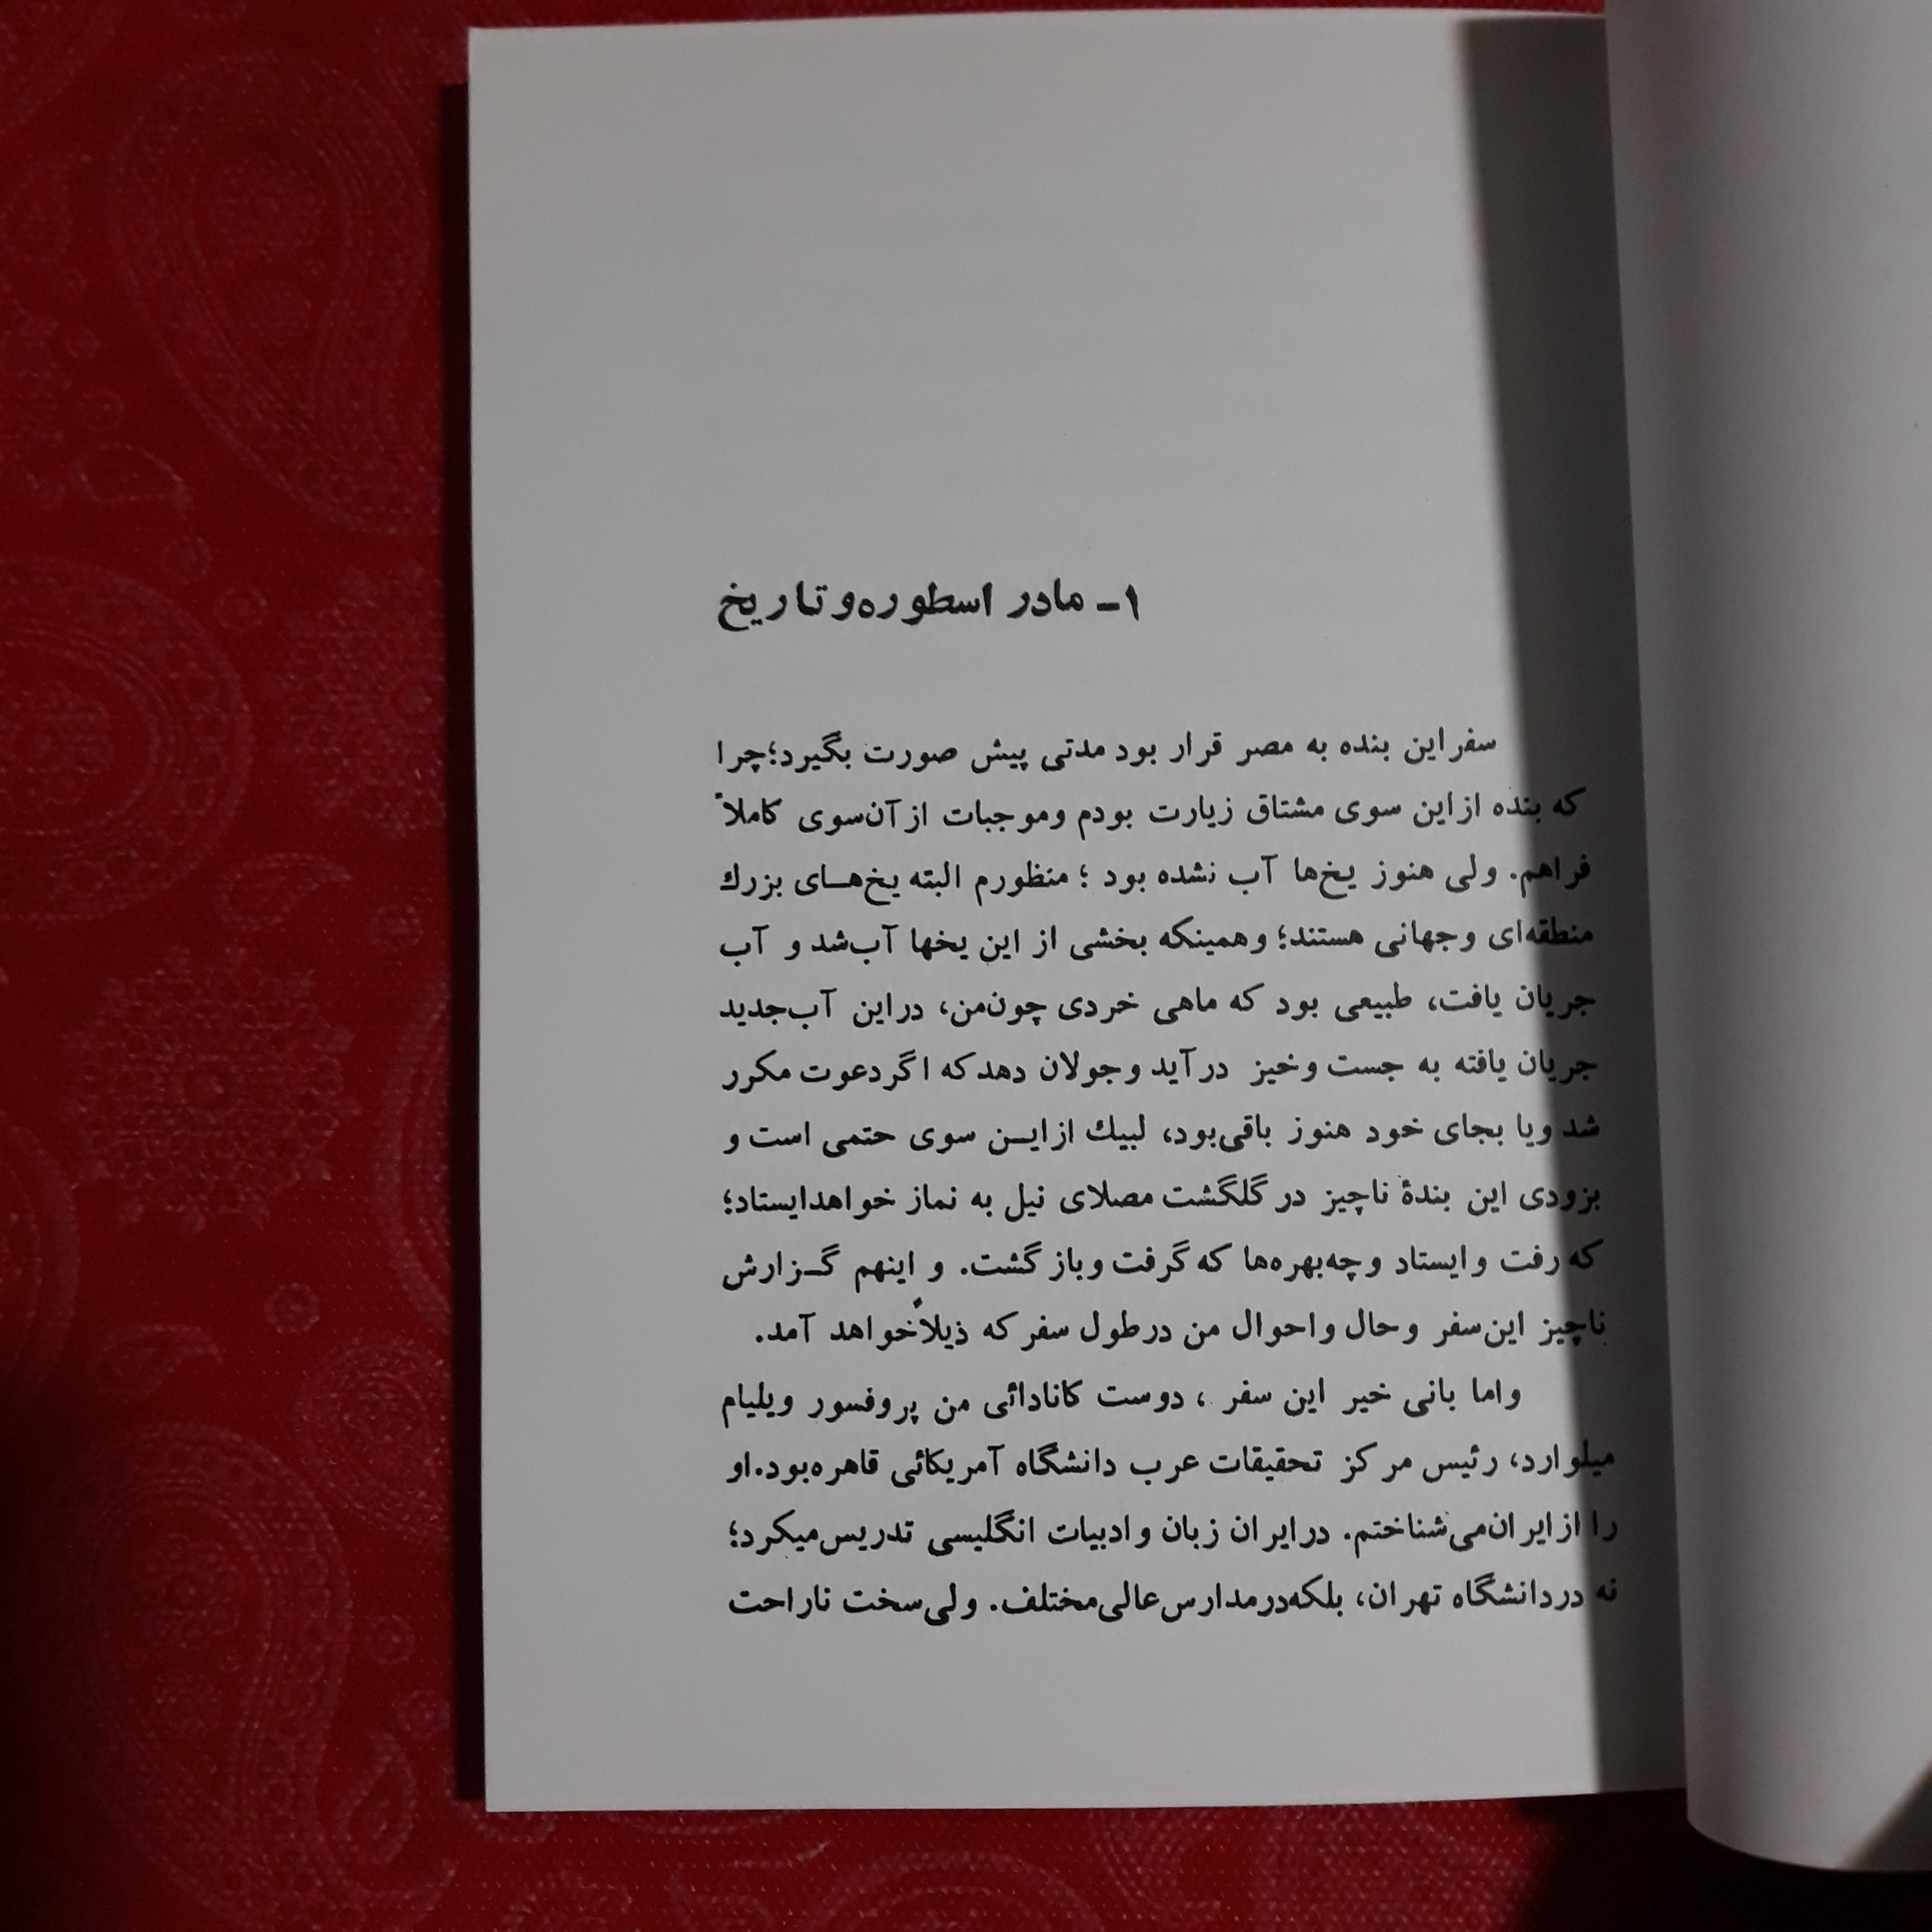 ۱- مادر اسطوره و تاریخ
سفر این بنده به مصر قرار بود مدتی پیش صورت بگیرد؛ چرا
که بنده از این سوی مشتاق زیارت بودم و موجبات از آن‌سوی کاملاً
فراهم. ولی هنوز یخ‌ها آب نشده بود؛ منظورم البته یخ‌هـای بزرك
منطقه‌ای و جهانی هستند؛ و همینکه بخشی از این یخها آب‌شد و آب
جریان یافت، طبیعی بود که ماهی خردی چون‌من، در این آب‌جدید
جریان یافته به جست و خیز در آید و جولان دهد که اگر دعوت مکرر
شد و یا بجای خود هنوز باقی‌بود، لبیك از ایـن سوی حتمی است و
بزودی این بندهٔ ناچیز در گلگشت مصلای نیل به نماز خواهد ایستاد؛
که رفت و ایستاد و چه‌بهره‌ها که گرفت و باز گشت. و اینهم گـزارش
ناچیز این‌سفر و حال و احوال من در طول سفر که ذیلاً خواهد آمد.
و اما بانی خیر این سفر، دوست کانادائی من پروفسور ویلیام
میلوارد، رئیس مرکز تحقیقات عرب دانشگاه آمریکائی قاهره بود. او
را از ایران می‌شناختم. در ایران زبان و ادبیات انگلیسی تدریس میکرد؛
نه در دانشگاه تهران، بلکه در مدارس عالی مختلف. ولی سخت ناراحت